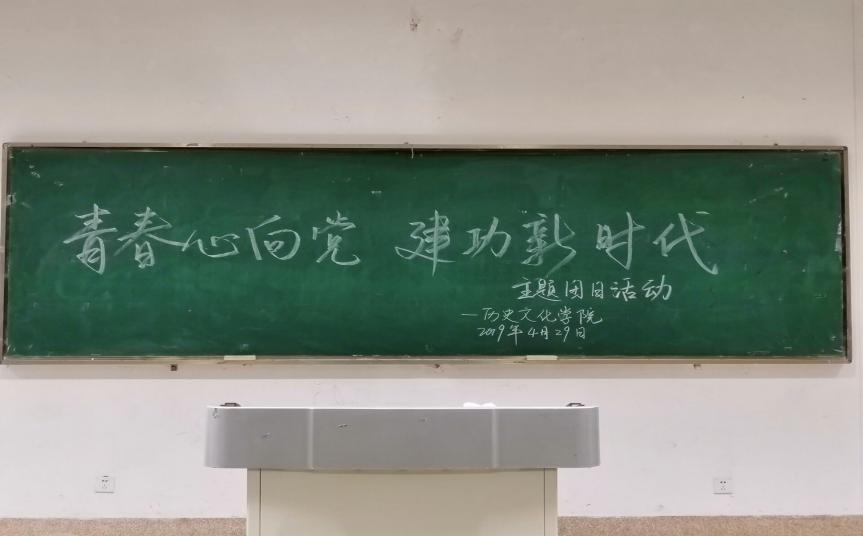 青春心向党 建功新时代
主题团日活动
—历史文化学院
2019年4月29日